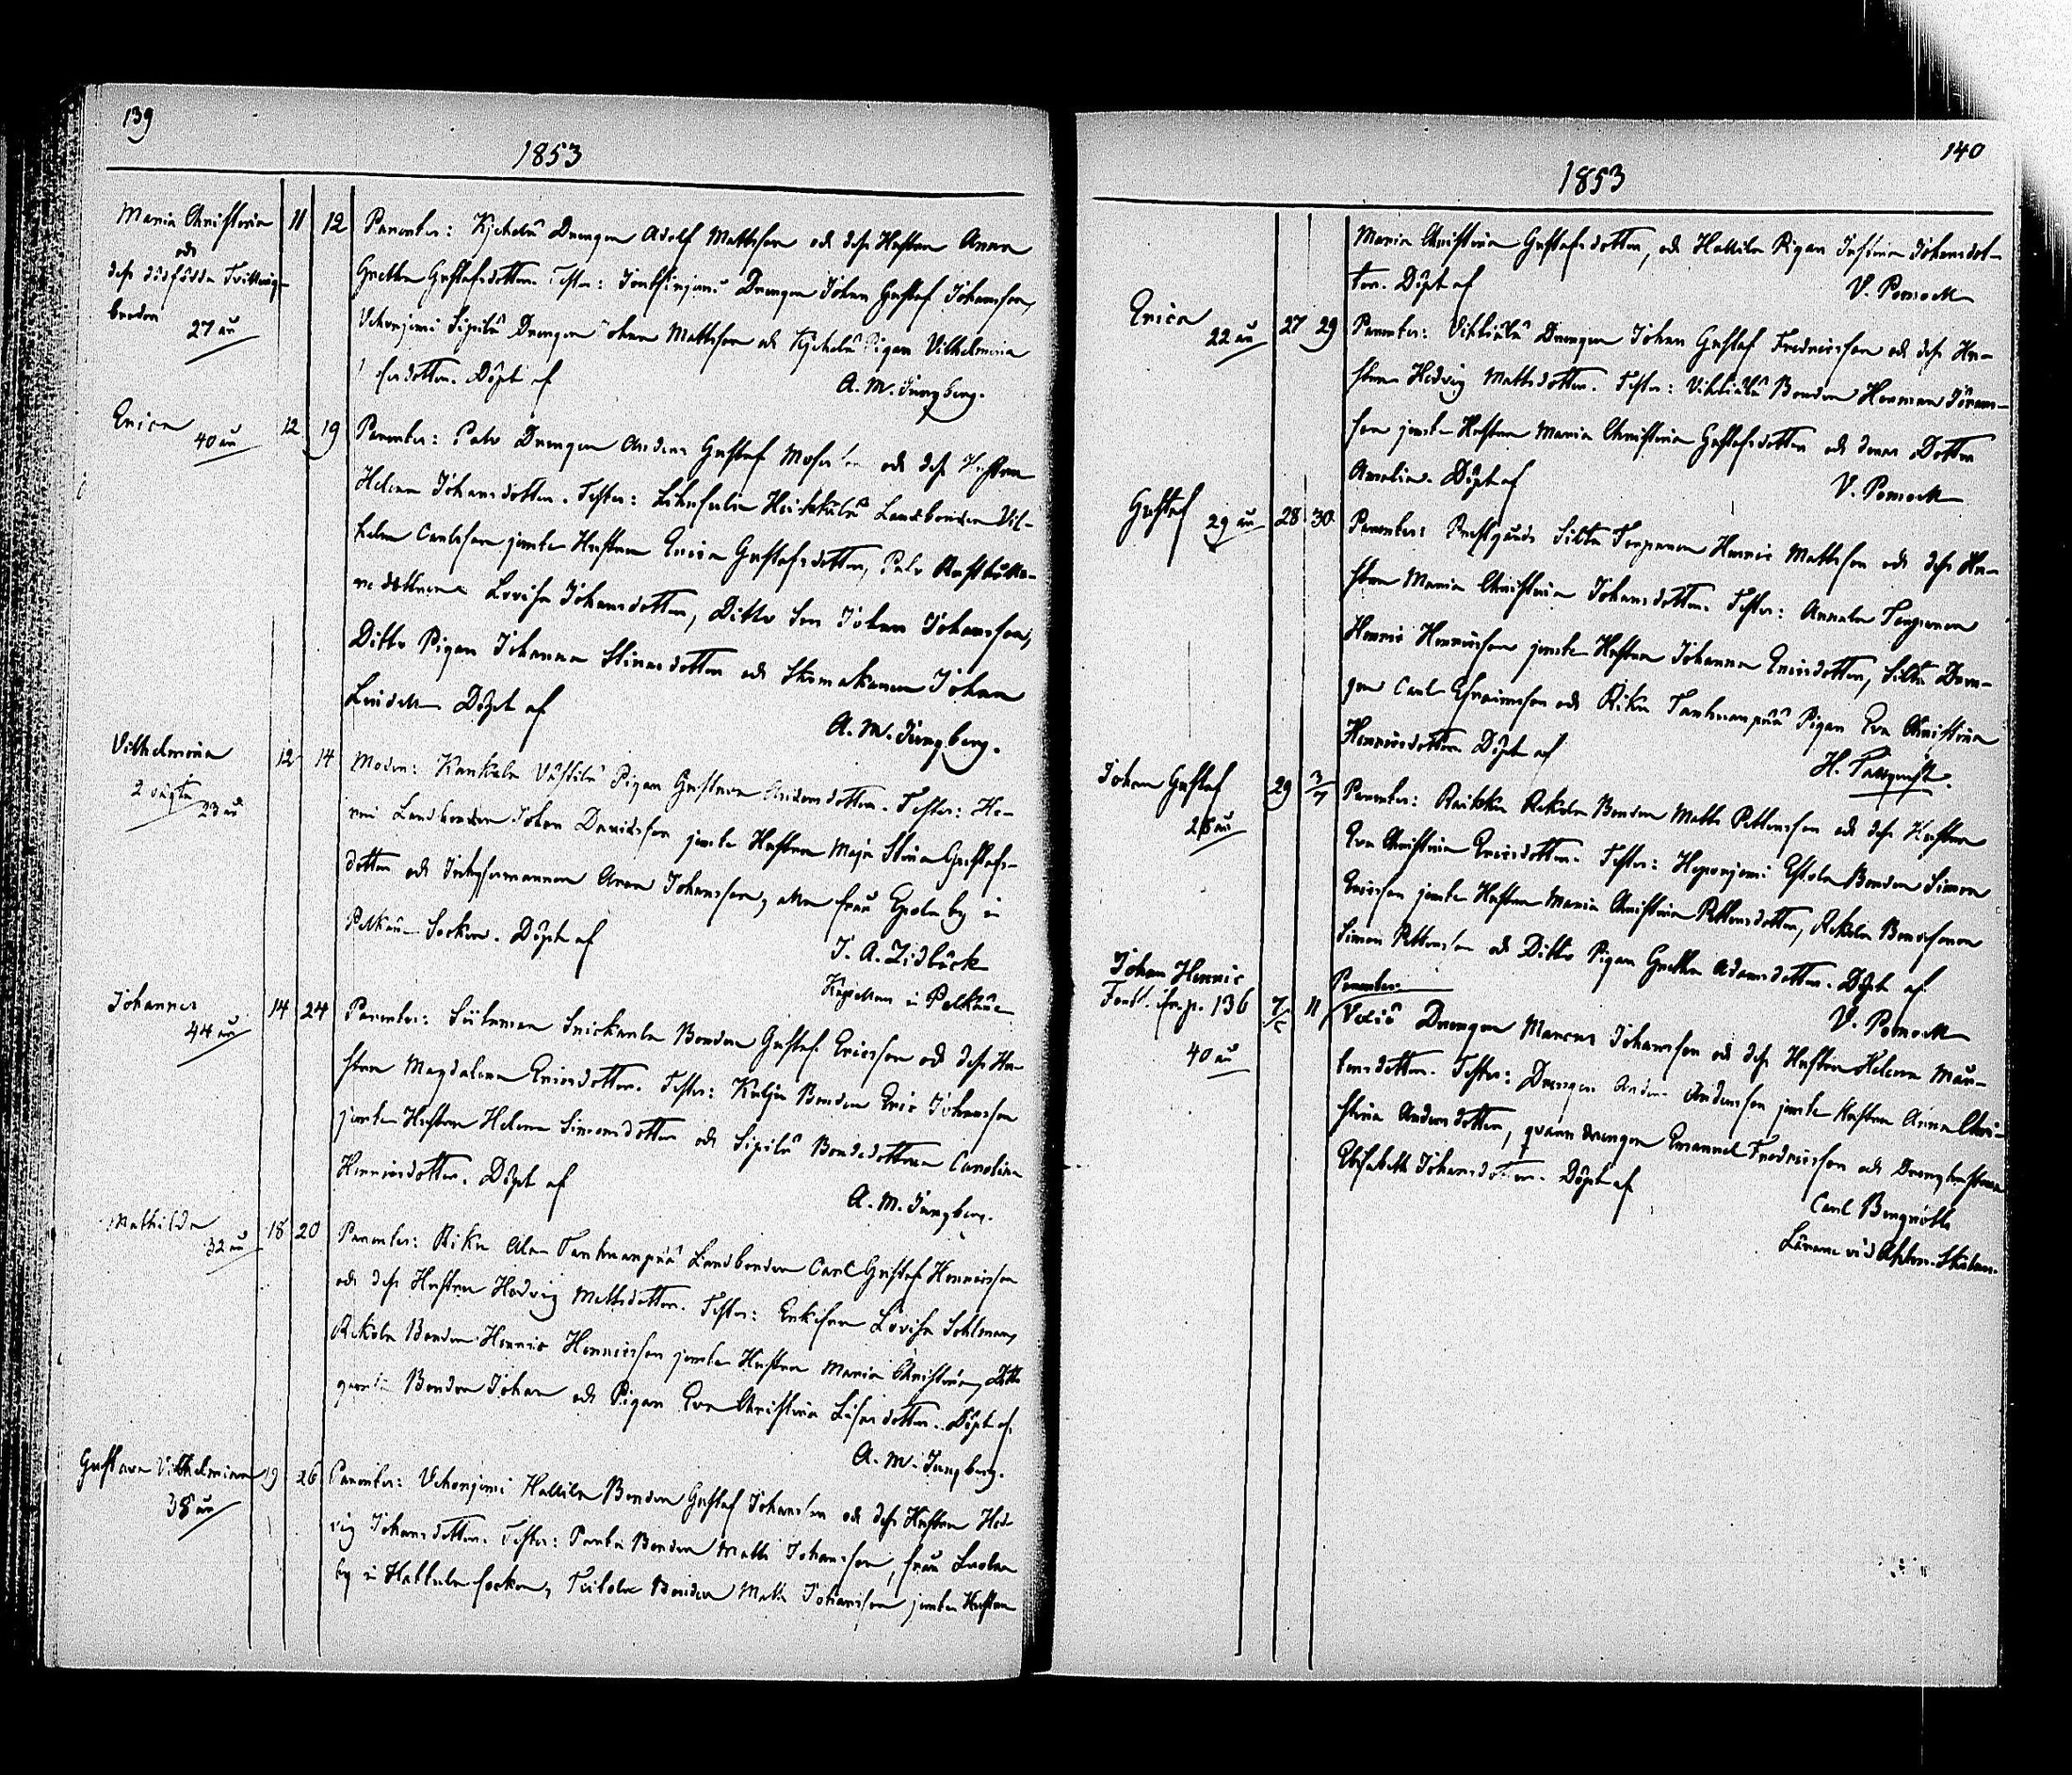 139
1853
Maria Christina
och
dess dödfödda Tvilling-
broder
27 år
11 12
Parenter: Kjekelä Drengen Adolf Mattsson och dess Hustru Anna
Gretha Gustafsdotter. Testes: Drengen Johan Gustaf Johansson,
Uskonjemi Sipilä Drengen Johan Mattsson och Kjekelä Pigan Vilhelmina
dotter. Döpt af
A. M. Ljungberg.
Erica
40 år
12 19
Parenter: Palo Drengen Anders Gustaf och dess Hustru
Helena Johansdotter. Testes: Heikkilä Landbonden Vil-
helm Carlsson jemte Hustru Erica Gustafsdotter, Palo Rusthålla-
redottern Lovisa Johansdotter, Ditto Son Johan Johansson,
Ditto Pigan Johanna Stinasdotter och Skomakaren Johan
Lindell Döpt af
A. M. Ljungberg.
Vilhelmina
2 oägta
23 år
12 14
Moder: Kankala Pigan Gustava Andersdotter. Testes: He-
Landbonden Johan Davidsson jemte Hustru Maja Stina Gustafs-
dotter och Aron Johansson, alla från by i
Pelkäne Socken. Döpt af
J. A. Zidbäck
Kapellan i Pelkäne
Johannes
44 år
14 24
Parenter: Snickarla Bonden Gustaf Ericsson och dess Hu-
stru Magdalena Ericsdotter. Testes: Bonden Eric Johansson
jemte Hustru Helena Simonsdotter och Sipilä Bondedottren Carolina
Henricsdotter. Döpt af
A. M. Ljungberg.
Mathilda
32 år
18 20
Parenter: Riku Ala Tanhuanpää Landbonden Carl Gustaf Henricsson
och dess Hustru Hedvig Mattsdotter. Testes: Enkefru Lovisa Sohlman,
Rekola Bonden Henric Henricsson jemte Hustru Maria Christina, Ditto
Bonden Johan och Pigan Eva Christina Lisasdotter. Döpt af
A. M. Ljungberg.
Gustava Vilhelmina
38 år
19 26
Parenter: Uskonjemi Hallila Bonden Gustaf Johansson och dess Hustru Hed-
vig Johansdotter. Testes: Bonden Matts Johansson, från
by i Hattula socken, Bonden Matts Johansson jemte Hustru
140
1853
Maria Christina Gustafsdotter, och Hallila Pigan Justina Johansdot-
ter. Döpt af
V. Pomoell
Erica
22 år
27 29
Parenter: Drengen Johan Gustaf Fredricsson och dess Hu-
stru Hedvig Mattsdotter. Testes: Bonden Herman Görans-
son jemte Hustru Maria Christina Gustafsdotter och deras Dotter
Amalia. Döpt af
V. Pomoell
Gustaf
29 år
28 30
Parenter: Prestgårds Torparen Henric Mattsson och dess Hu-
stru Maria Christina Johansdotter. Testes: Annala Torparen
Henric Henricsson jemte Hustru Johanna Ericsdotter, Dren-
gen Carl Efraimsson och Riku Tanhuanpää Pigan Eva Christina
Henricsdotter. Döpt af
H. Pallqvist.
Johan Gustaf
28 år
29 3/7
Parenter: Raikku Rekola Bonden Matts Pettersson och dess Hustru
Eva Christina Ericsdotter. Testes: Eskola Bonden Simon
Ericsson jemte Hustru Maria Christina Pettersdotter, Rekola Bondsonen
Simon Pettersson och Ditto Pigan Gretha Adamsdotter. Döpt af
V. Pomoell
Johan Henric
Fortf. fr. p. 136
40 år
7/5 11
Parenter:
Drengen Marcus Johansson och dess Hustru Helena Mår-
tensdotter. Testes: Drengen Anders Andersson jemte Hustru Anna Chri-
stina Andersdotter, qvarndrengen Emanuel Fredricsson och Drenghustrun
Elisabeth Johansdotter. Döpt af
Carl Bergroth
Lärare vid Afton-Skolan.